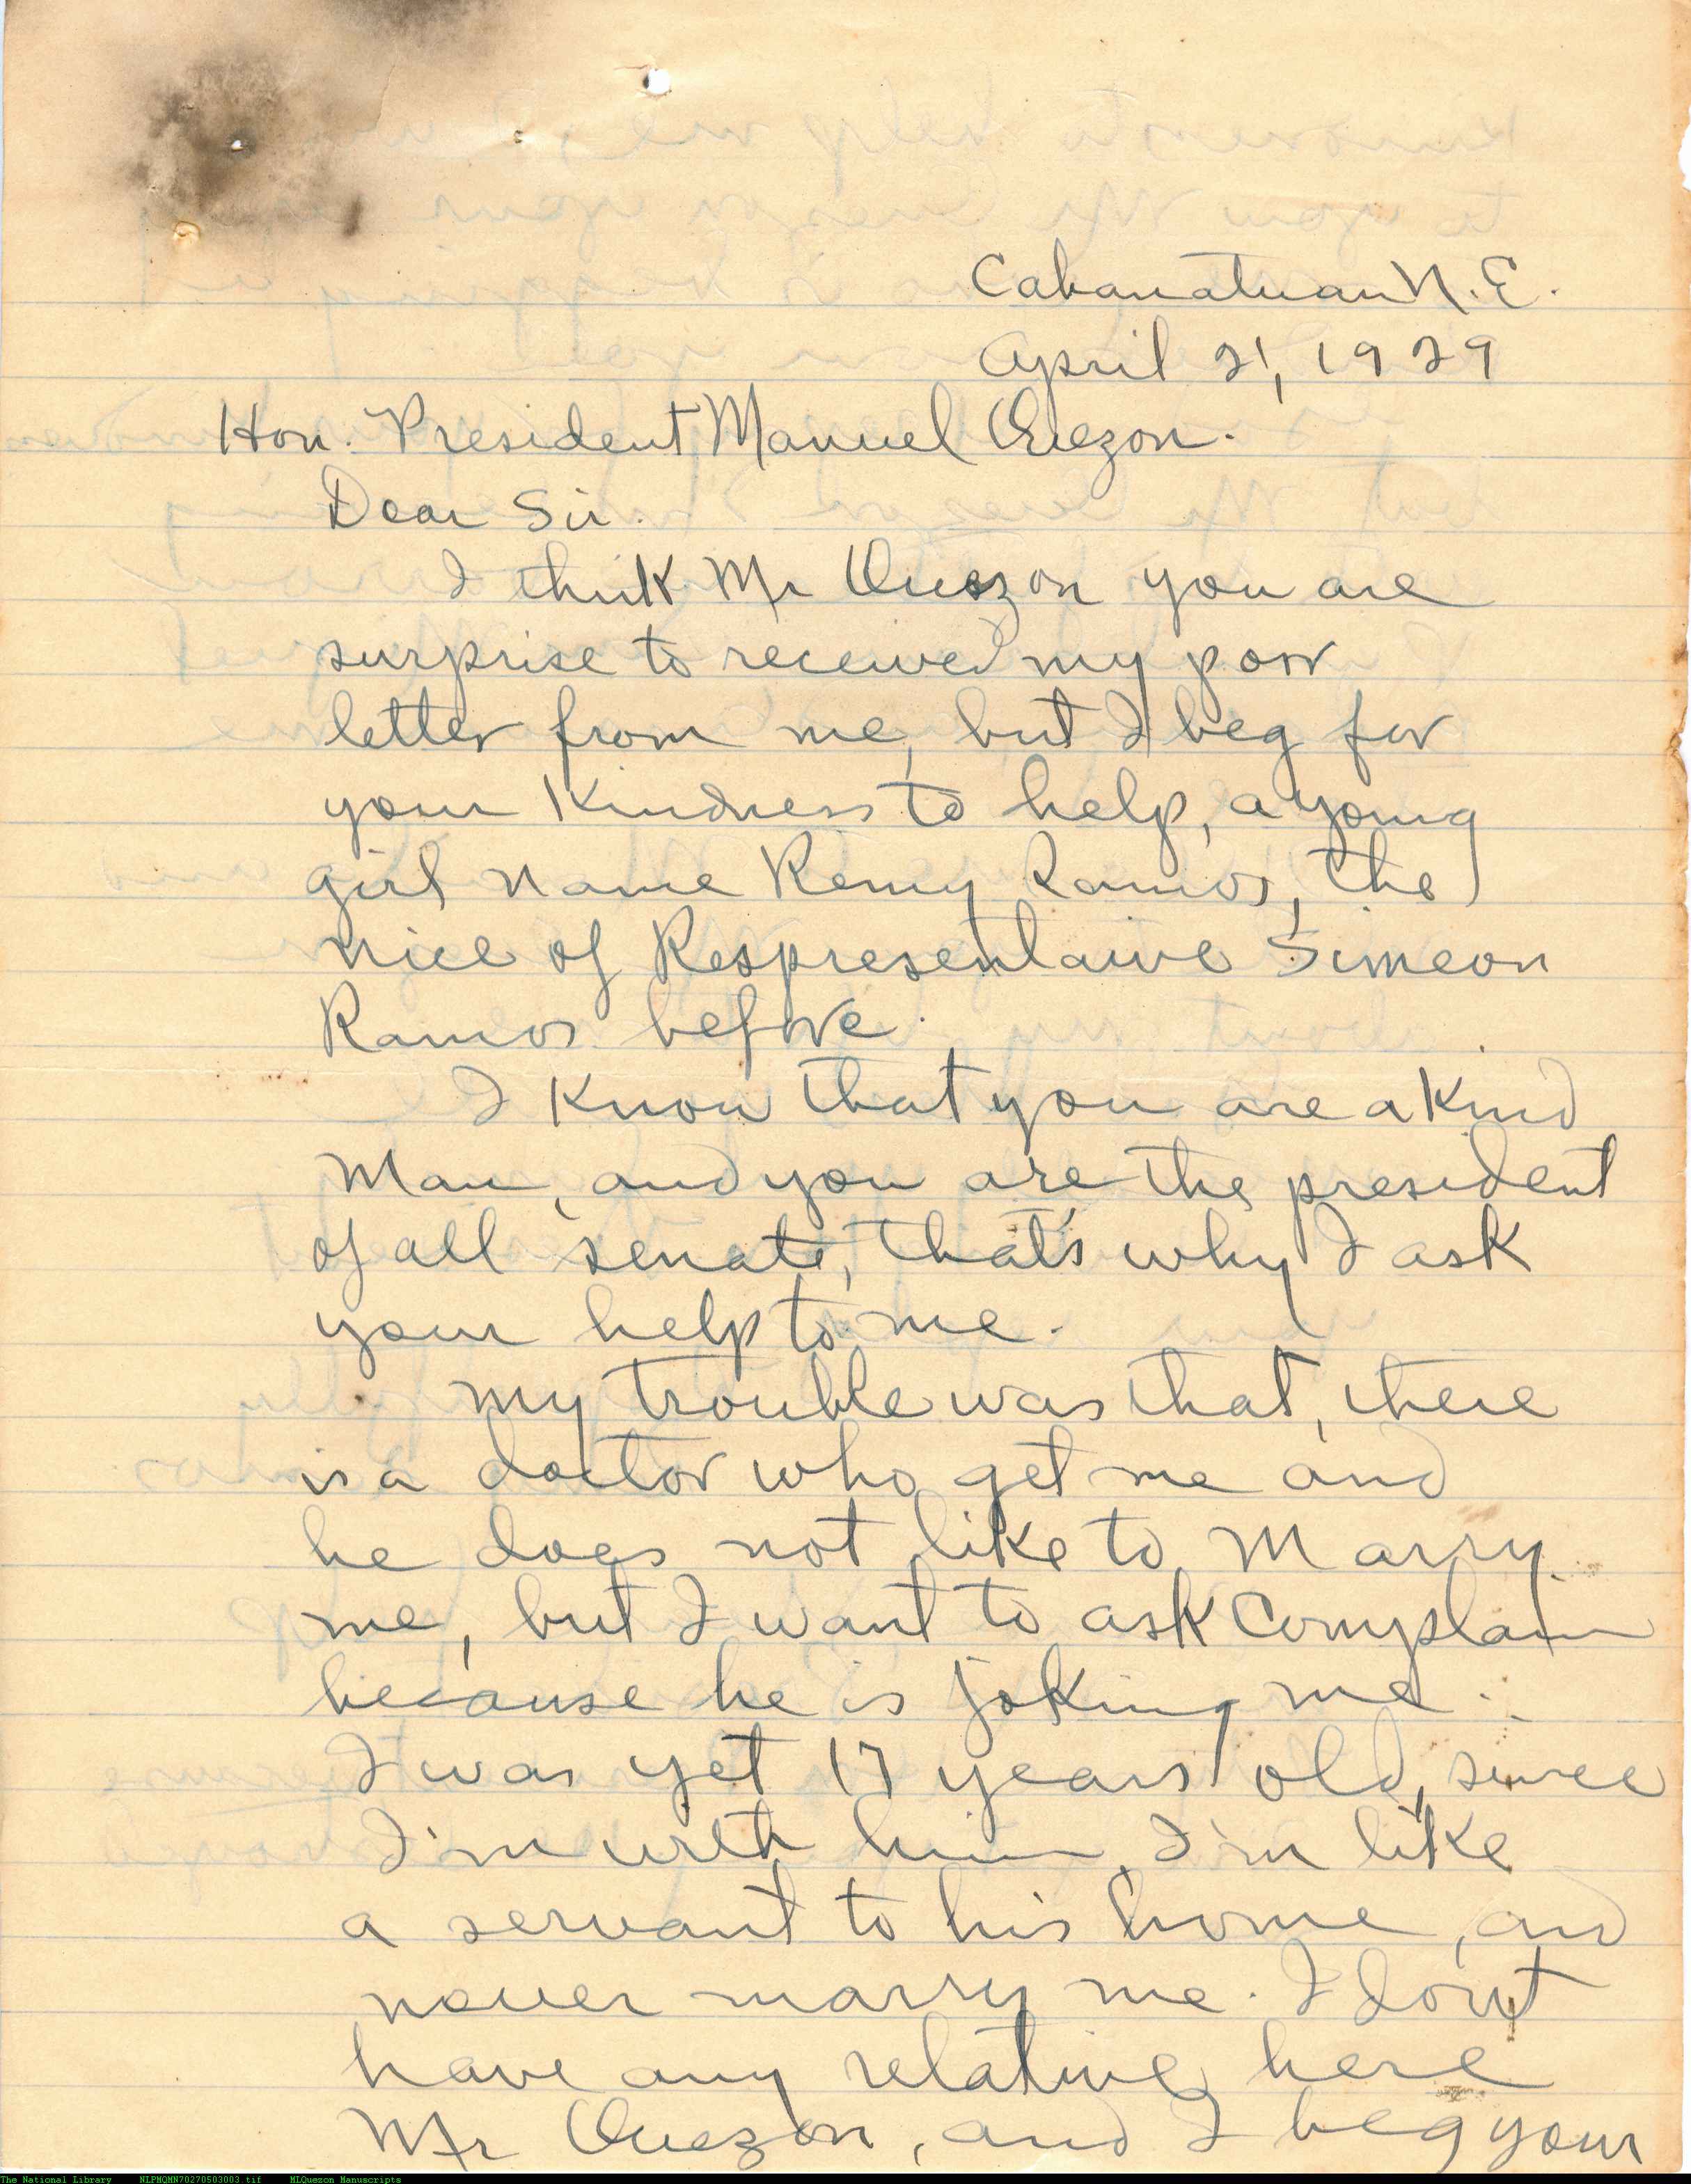 Cabanatuan N.E.
April 21, 1929
Hon. President Manuel Quezon.
Dear Sir.
I think Mr Quezon you are
surprise to received my poor
letter from me, but I beg for
your kindness to help, a young
girl name Remy Ramos, the
niece of Respresentaive Simeon
Ramos before.
I know that you are a kind
man, and you are the president
of all senate, that's why I ask
your help to me.
my trouble was that, there
is a doctor who get me and
he does not like to marry
me, but I want to ask complain
because he is joking me.
I was yet 17 years old, since
I'm with him, I'm like
a servant to his home, and
never marry me. I don't
have any relative here
Mr Quezon, and I beg your
The National Library NLPMQMN70270503003.tif MLQuezon Manuscripts